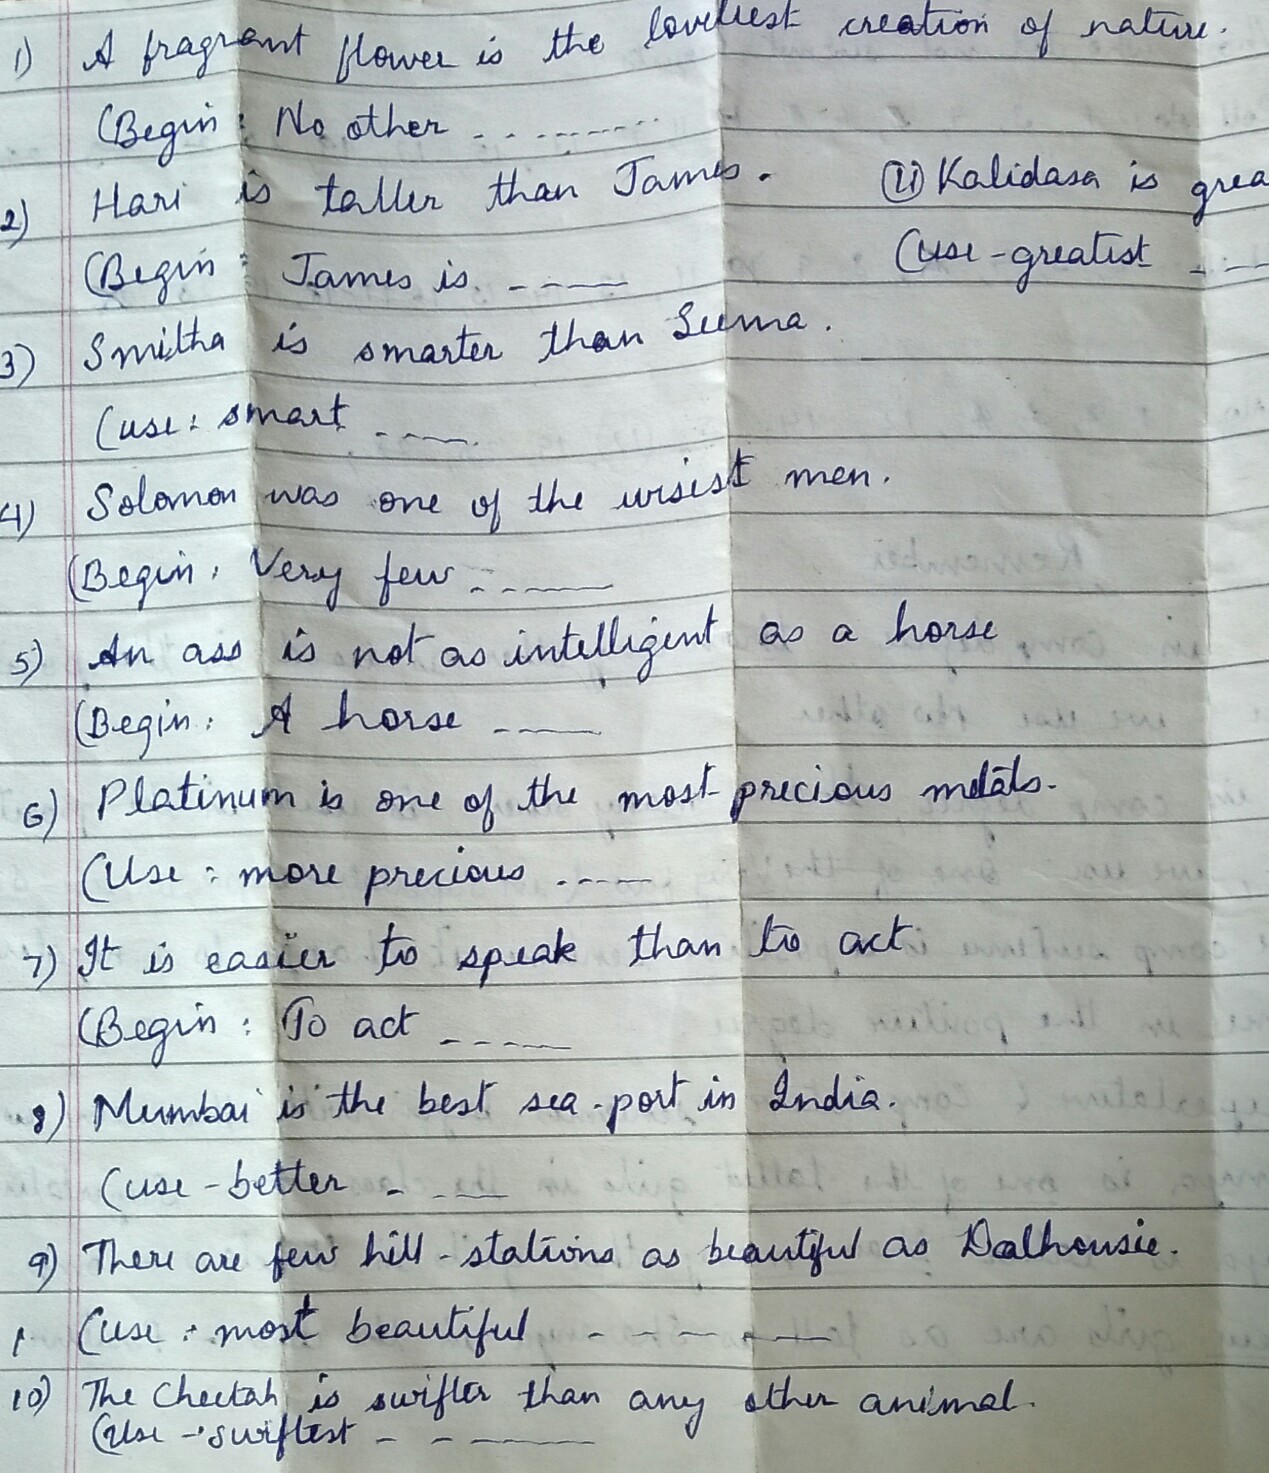 1) A fragrant flower is the loveliest creation of nature.
(Begin: No other ---------
2) Hari is taller than James.
(Begin: James is ----
3) Smitha is smarter than Seema.
(use: smart ----
4) Solomon was one of the wisest men.
(Begin: Very few -----
5) An ass is not as intelligent as a horse
(Begin: A horse ----
6) Platinum is one of the most precious metals.
(Use: more precious -----
7) It is easier to speak than to act
(Begin: To act -----
8) Mumbai is the best sea-port in India.
(use - better ----
9) There are few hill-stations as beautiful as Dalhousie.
(use: most beautiful ------
10) The Cheetah is swifter than any other animal.
(Use - swiftest -----
11) Kalidasa is
(use - greatest ---